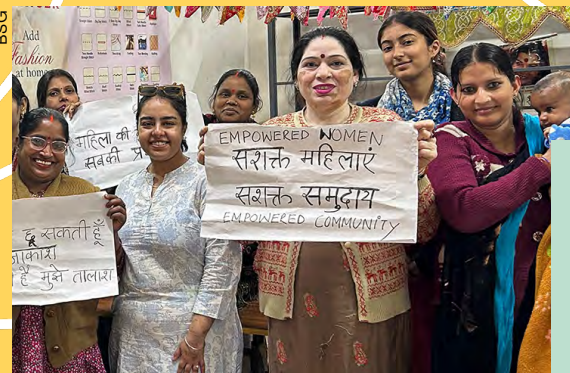 BSG
Add
Fashion
at home
महिला की
सबकी
EMPOWERED WOMEN
सशक्त महिलाएं
सशक्त समुदाय
EMPOWERED COMMUNITY
छू सकती हूँ
है मुझे तालाश